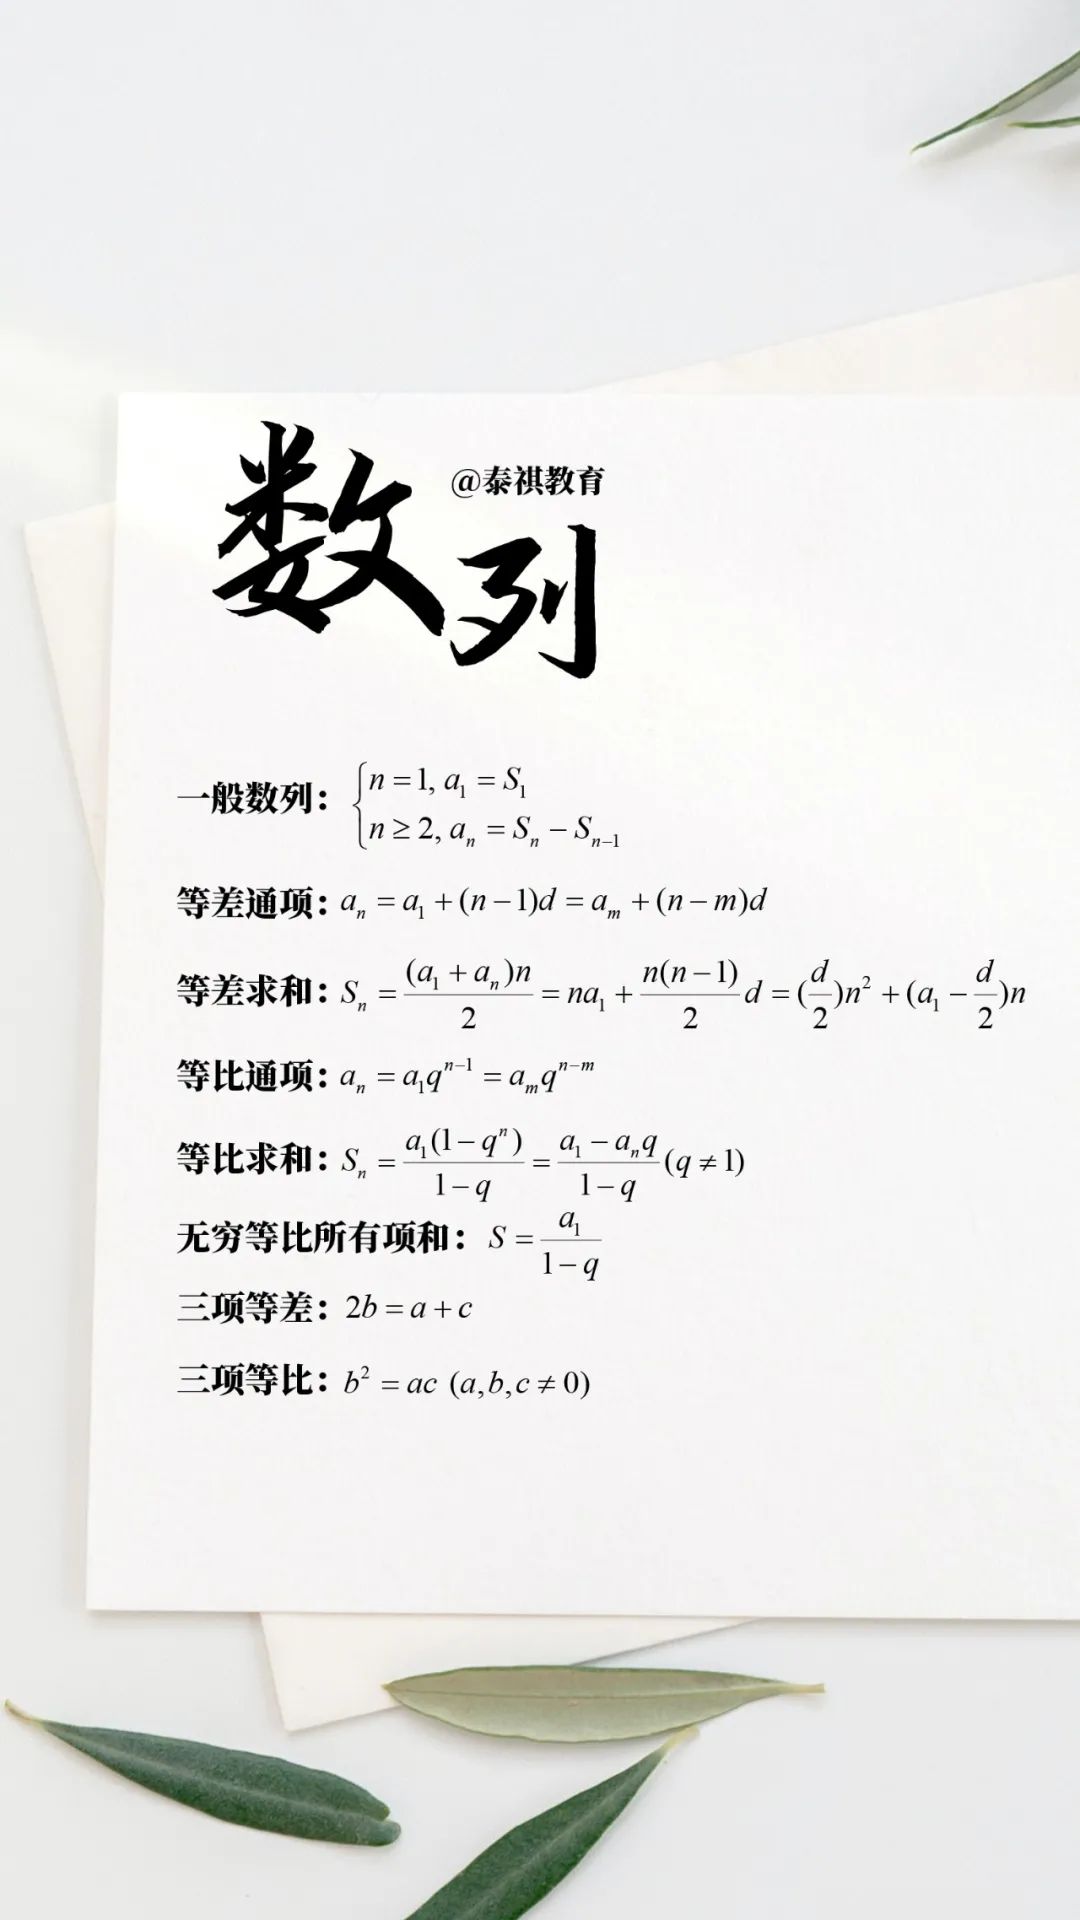 数列
@泰祺教育
一般数列： { n = 1, a₁ = S₁
n ≥ 2, aₙ = Sₙ − Sₙ₋₁
等差通项：aₙ = a₁ + (n − 1)d = aₘ + (n − m)d
等差求和：Sₙ = (a₁ + aₙ)n / 2 = na₁ + n(n − 1) / 2 d = (d / 2)n² + (a₁ − d / 2)n
等比通项：aₙ = a₁qⁿ⁻¹ = aₘqⁿ⁻ᵐ
等比求和：Sₙ = a₁(1 − qⁿ) / 1 − q = a₁ − aₙq / 1 − q (q ≠ 1)
无穷等比所有项和： S = a₁ / 1 − q
三项等差：2b = a + c
三项等比：b² = ac (a,b,c ≠ 0)